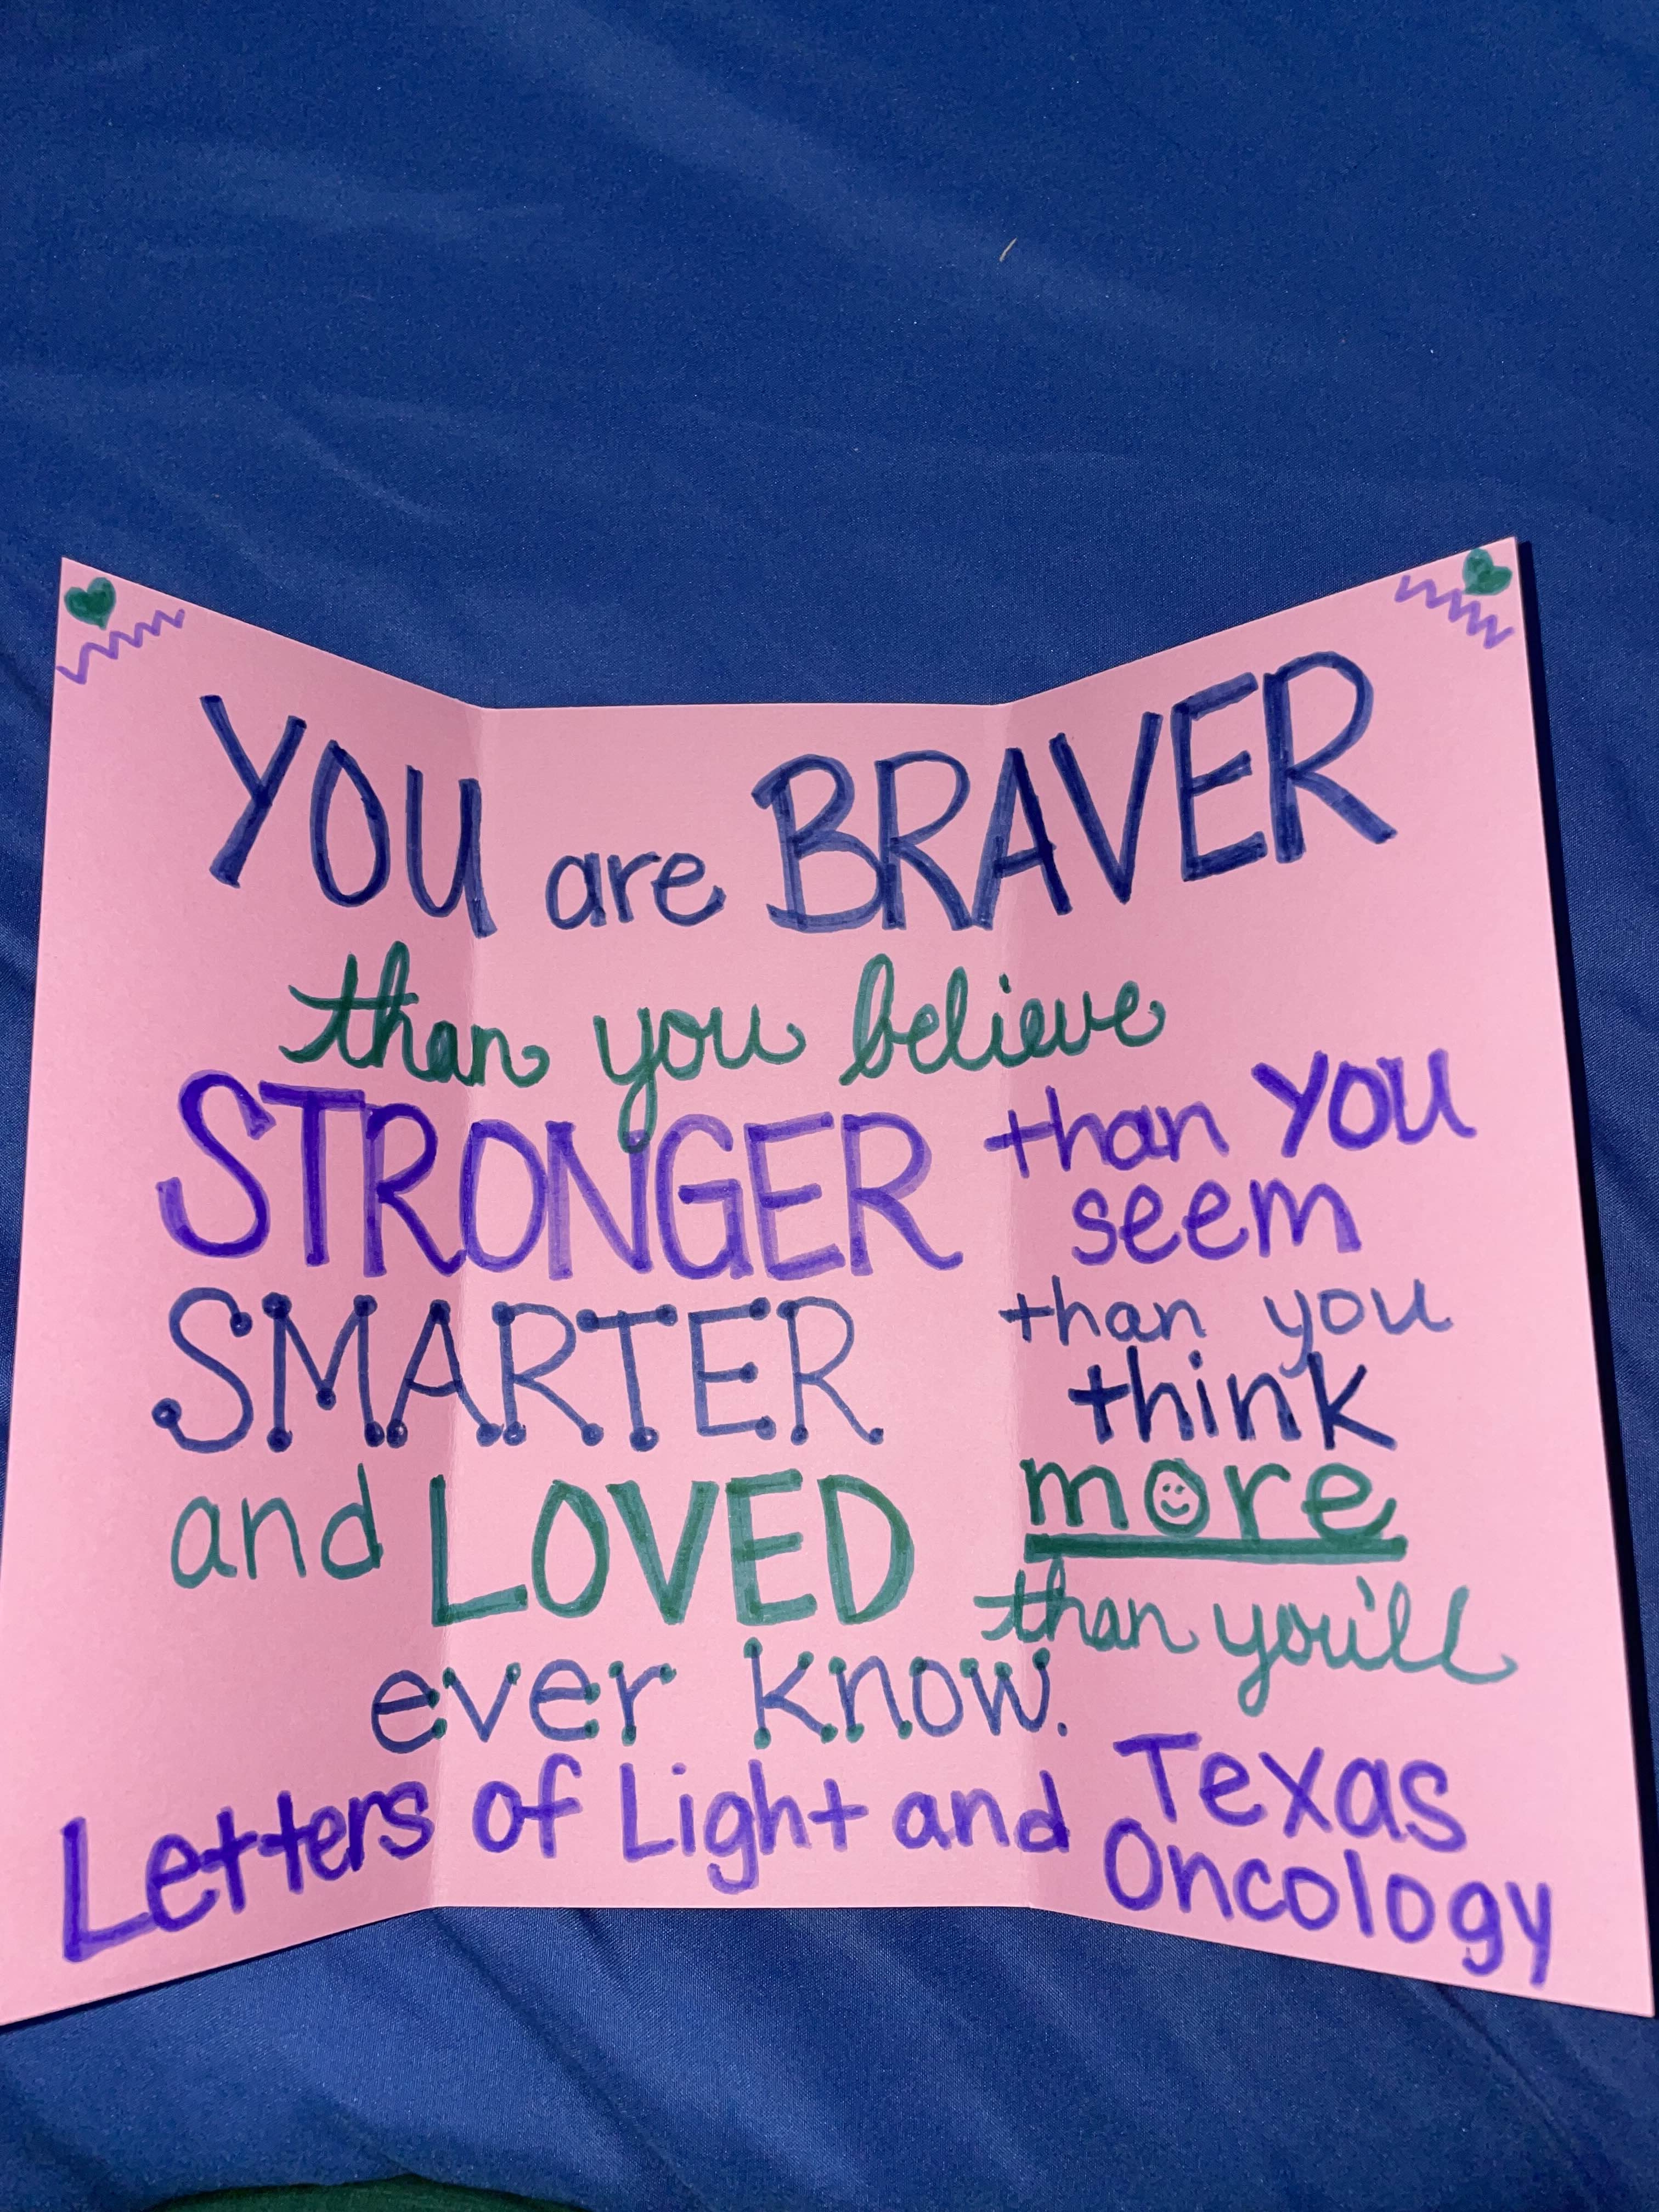 YOU are BRAVER
than you believe
STRONGER than YOU
seem
SMARTER than you
think
and LOVED more
than you'll
ever know.
Letters of Light and Texas
Oncology